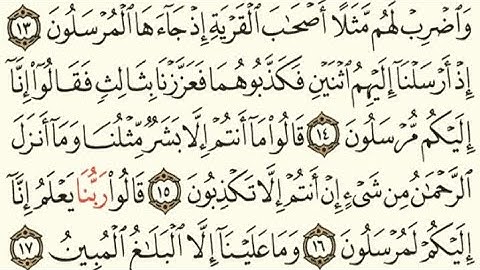 وَٱضْرِبْ لَهُم مَّثَلًا أَصْحَٰبَ ٱلْقَرْيَةِ إِذْ جَآءَهَا ٱلْمُرْسَلُونَ ١٣
إِذْ أَرْسَلْنَآ إِلَيْهِمُ ٱثْنَيْنِ فَكَذَّبُوهُمَا فَعَزَّزْنَا بِثَالِثٍ فَقَالُوٓا۟ إِنَّآ
إِلَيْكُم مُّرْسَلُونَ ١٤ قَالُوا۟ مَآ أَنتُمْ إِلَّا بَشَرٌ مِّثْلُنَا وَمَآ أَنزَلَ
ٱلرَّحْمَٰنُ مِن شَىْءٍ إِنْ أَنتُمْ إِلَّا تَكْذِبُونَ ١٥ قَالُوا۟ رَبُّنَا يَعْلَمُ إِنَّآ
إِلَيْكُمْ لَمُرْسَلُونَ ١٦ وَمَا عَلَيْنَآ إِلَّا ٱلْبَلَٰغُ ٱلْمُبِينُ ١٧